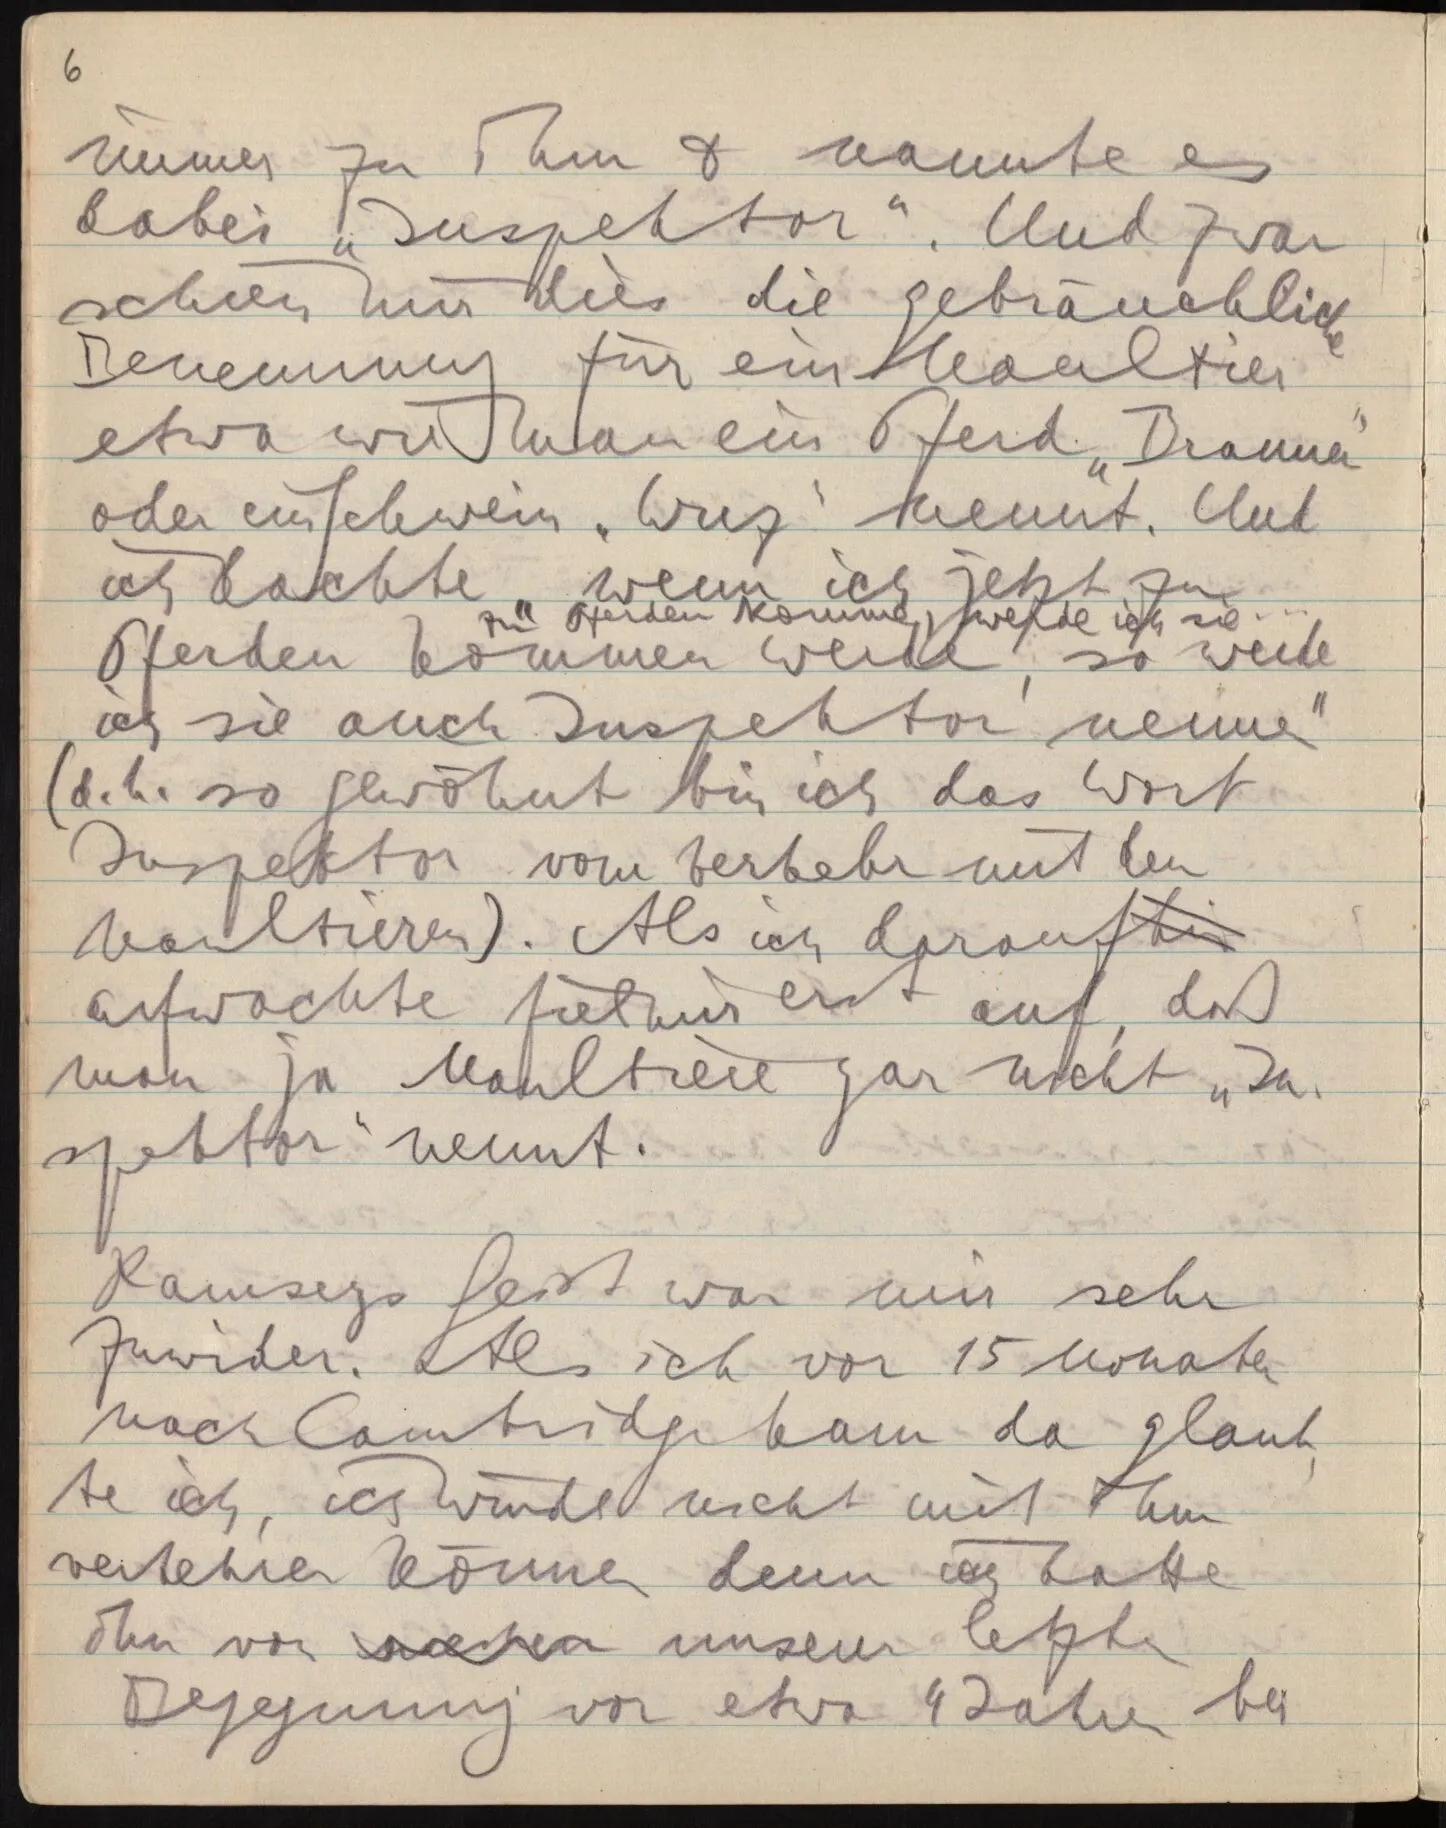 6
immer zu ihm & nannte es
dabei „Inspektor“. Und zwar
schien mir dies die gebräuchliche
Benennung für ein Maultier
etwa wie man ein Pferd „Brauner“
oder ein Schwein „Wuz“ nennt. Und
ich dachte „wenn ich jetzt zu
zu Pferden komme, werde ich sie ...
Pferden kommen werde, so werde
ich sie auch Inspektor nennen“
(d.h. so gewöhnt bin ich das Wort
Inspektor vom Verkehr mit den
Maultieren). Als ich daraufhin
aufwachte fiel mir erst auf, daß
man ja Maultiere gar nicht „In-
spektor“ nennt.
Ramseys Geist war mir sehr
zuwider. Als ich vor 15 Monaten
nach Cambridge kam da glaub-
te ich, ich würde nicht mit ihm
verkehren können denn ich hatte
ihn von unserer letzten
Begegnung vor etwa 4 Jahren bei